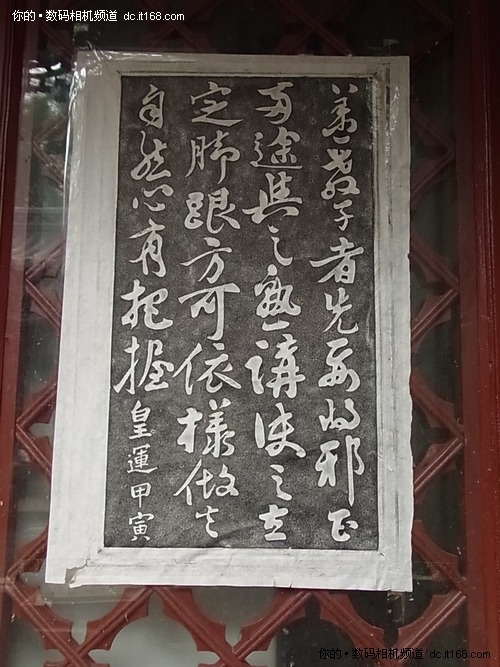 你的·数码相机频道 dc.it168.com
善教子者先要將邪正
兩途與之熟講使之立
定脚跟方可依樣做去
自然心有把握皇運甲寅
你的·数码相机频道 dc.it168.com